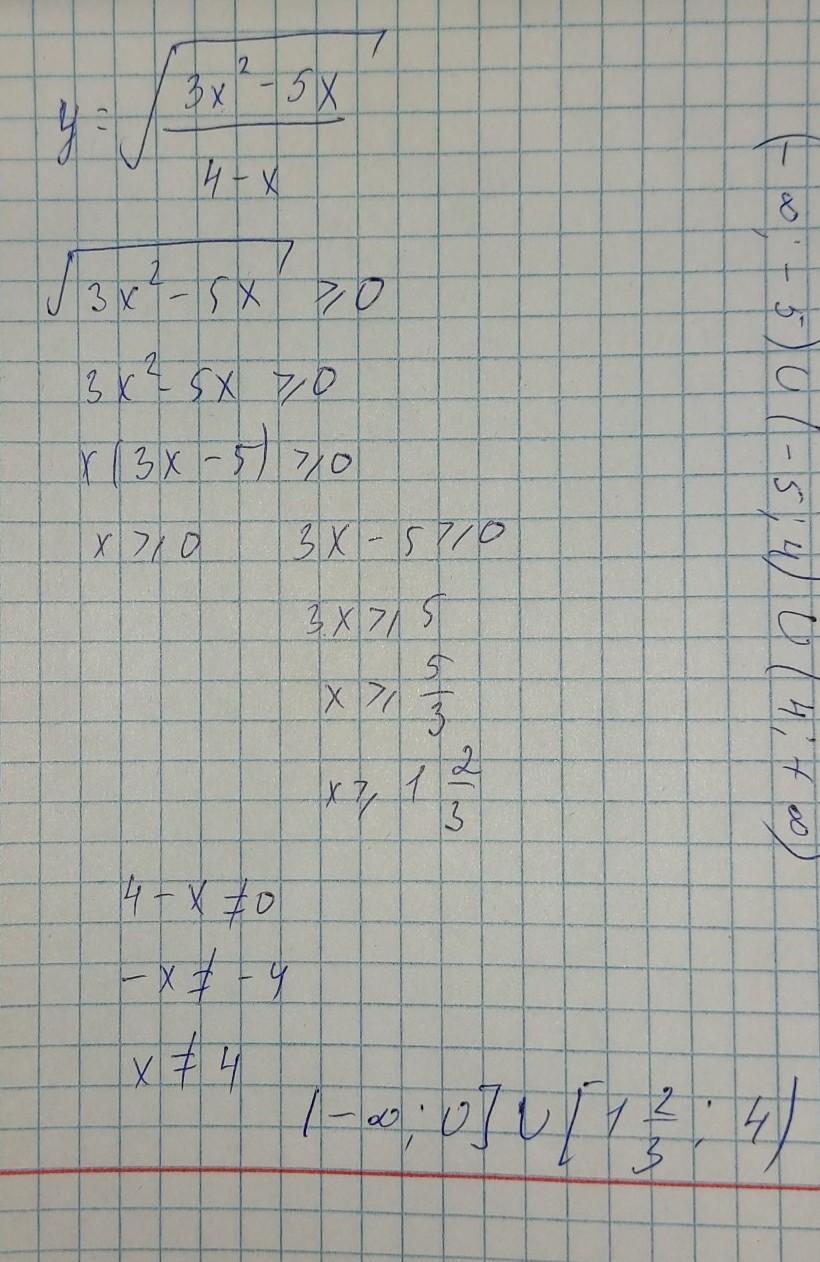 y = √((3x² - 5x)/(4 - x))
√(3x² - 5x) ⩾ 0
3x² - 5x ⩾ 0
x(3x - 5) ⩾ 0
x ⩾ 0 3x - 5 ⩾ 0
3x ⩾ 5
x ⩾ 5/3
x ⩾ 1 2/3
4 - x ≠ 0
-x ≠ -4
x ≠ 4
(-∞; 0] ∪ [1 2/3; 4)
(-∞; -5) ∪ (-5; 4) ∪ (4; +∞)